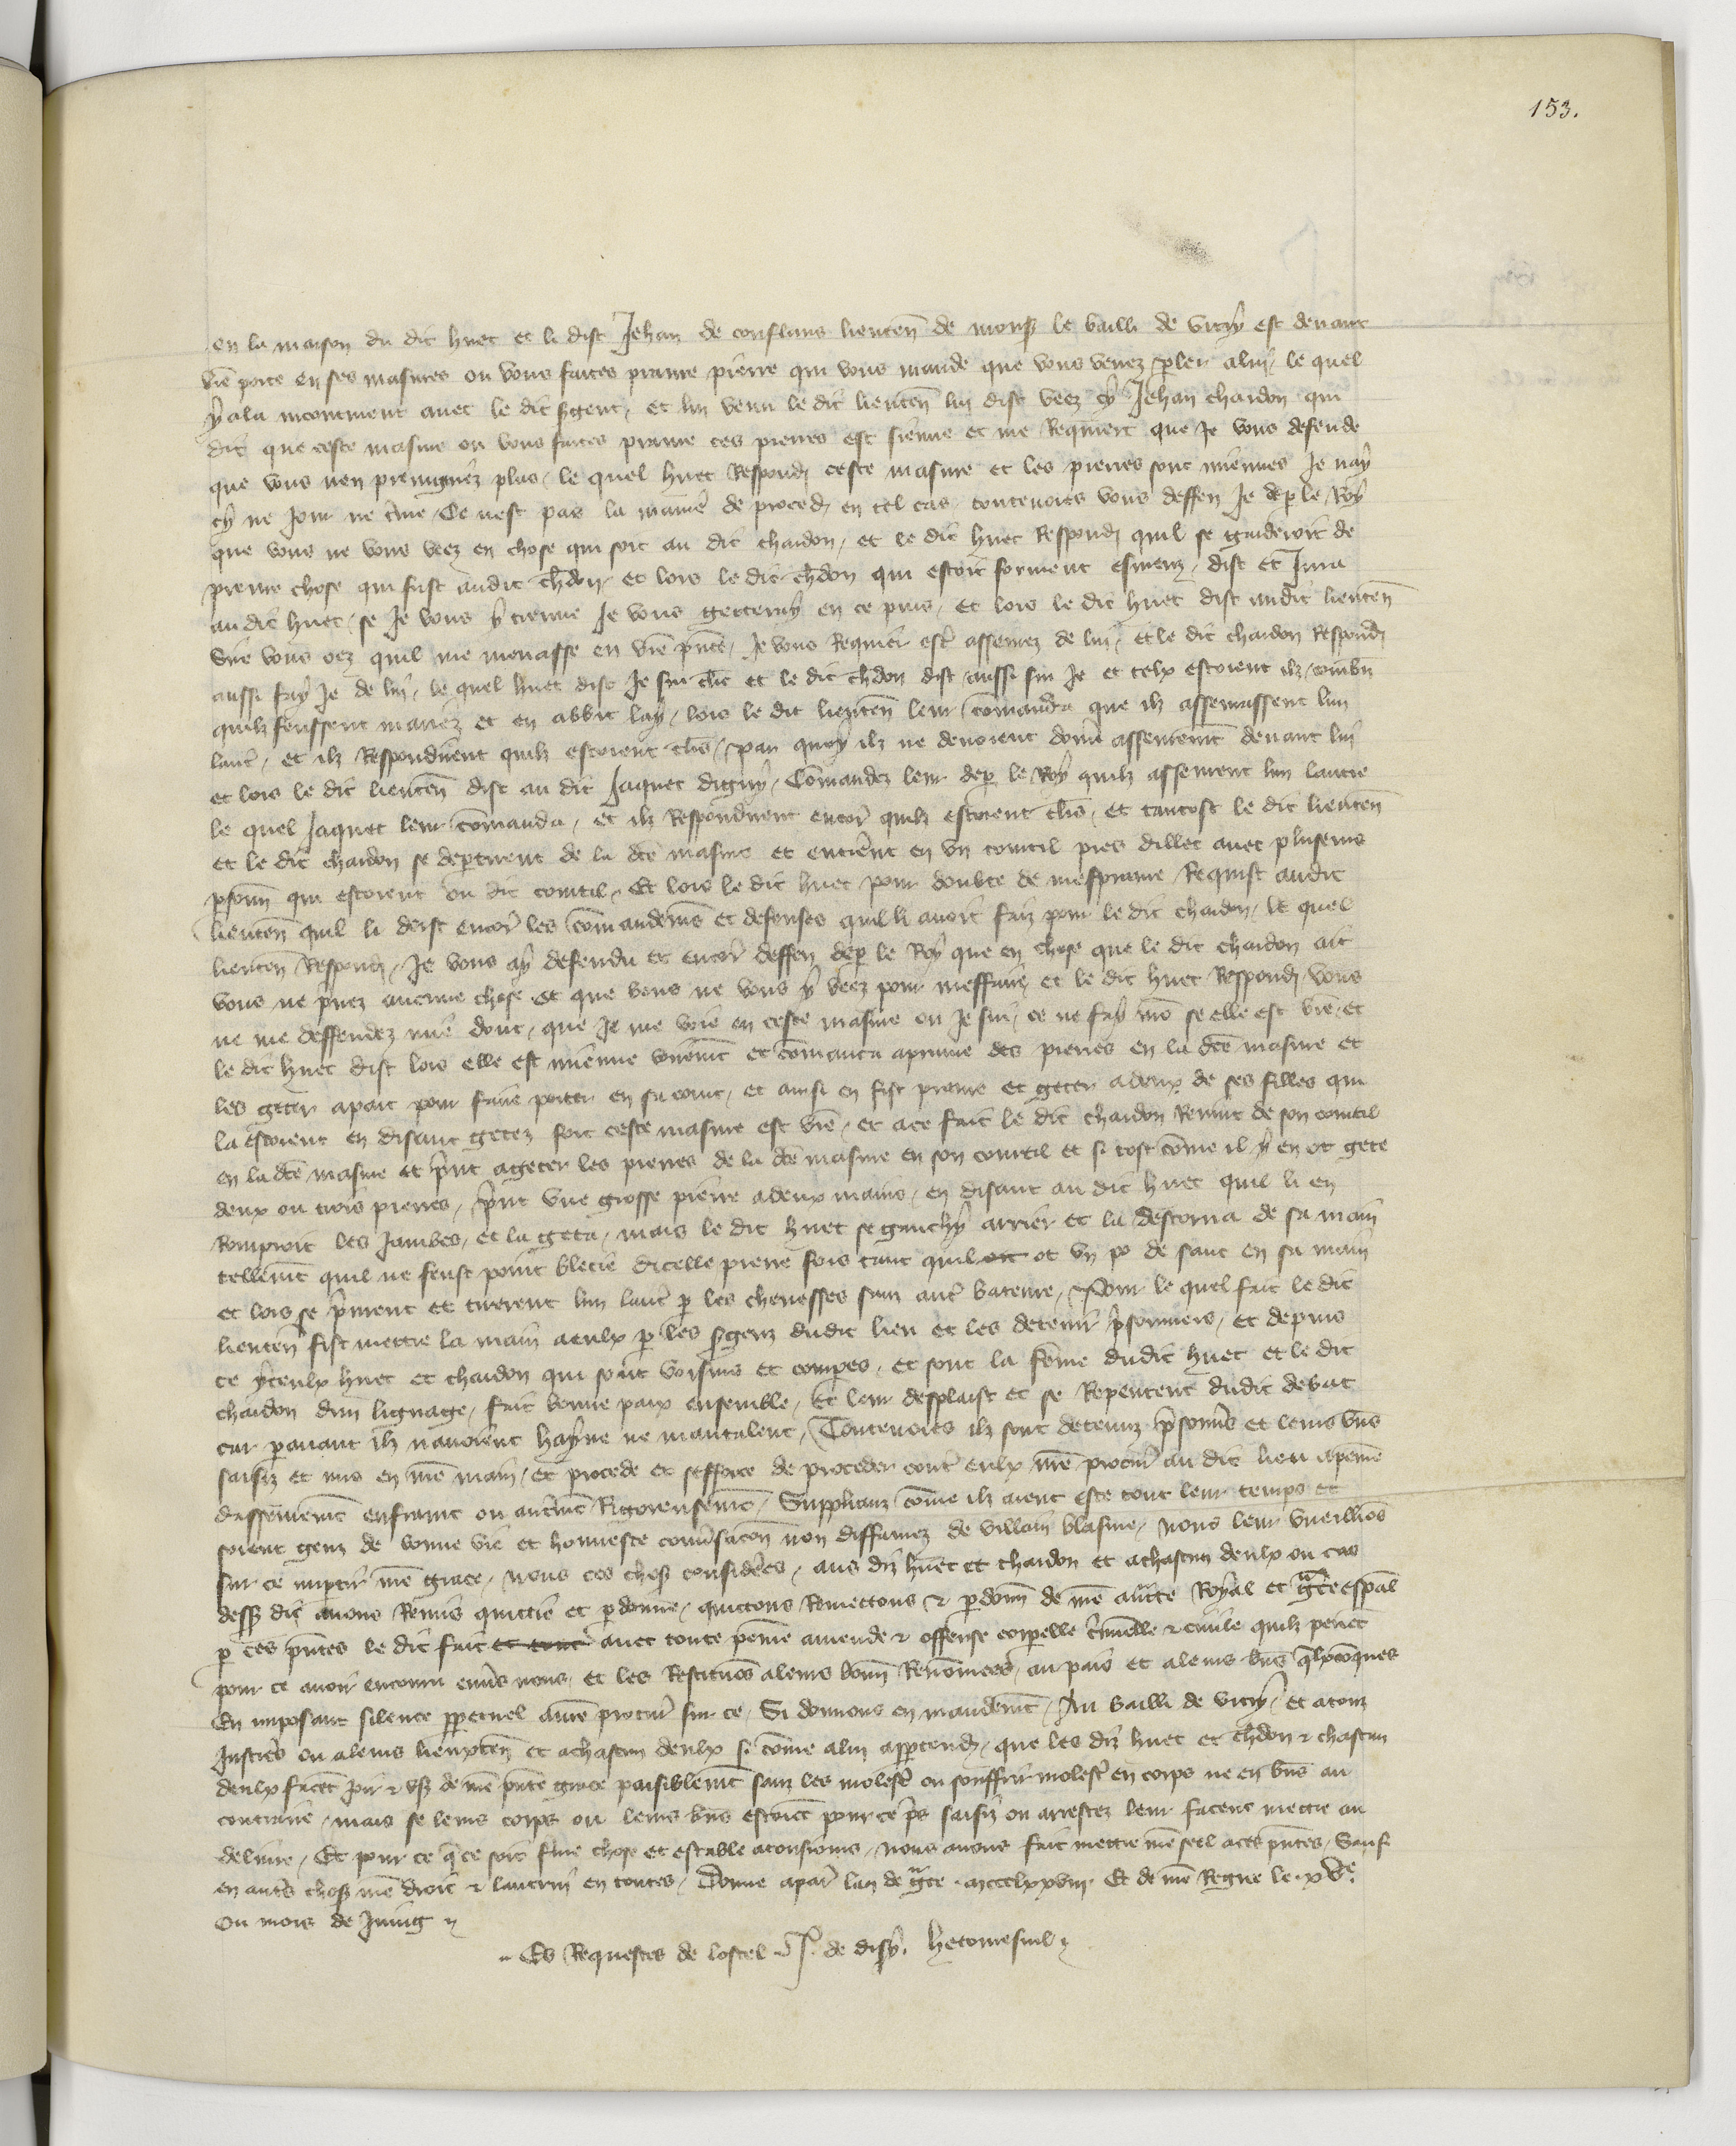 153.
en la maison du dit huet et li dist Jehan de conflans lieuten̄ de mons̄ le bailli de vitry est deuant
vr̄e porte en ses masures ou vous faites prãre pierre qui vous mande que vous venez ꝑler a lui / le quel
y ala incontinent auec le dit s̃gent / et lui venu le dit lieuten̄ lui dist veez cy Jehan chaudon qui
dit que ceste masure ou vous faites prãre ces pierres est sienne et me Requiert que Je vous defende
que vous nen preingniez plus / le quel huet Respondi ceste masure et les pierres sont miennes Je nay
cy ne Jour ne t̃me / Ce nest pas la manie᷑ de proced᷑ en tel cas / toutevoies vous deffen Je deꝑ le Roy
que vous ne vous veez en chose qui soit au dit chaudon / et le dit huet Respondi quil se garderoit de
prenre chose qui fust audit ch̄don / et lors le dit ch̄don qui estoit forment esmeuz / dist et Jura
au dit huet / se Je vous y treuue Je vous getteray en ce puis / et lors le dit huet dist audit lieuten̄
Sire vous oez quil me menasse en vr̄e p̃nce / Je vous Requier est᷑ asseurez de lui / et le dit chaudon Respondi
aussi fay Je de luy / le quel huet dist Je sui cler̄ et le dit ch̄don dist aussi sui Je et telx estoient ilz / combn̄
quilz feussent mariez et en abbit lay / lors le dit lieuten̄ leur com̄anda que ilz asseurassent lun
laut᷑ / et ilz Respondirent quilz estoient cler̄s / par quoy ilz ne deuoient donn᷑ asseurem̄t deuant luy
et lors le dit lieuten̄ dist au dit Jaquet digny / Com̄andez leur deꝑ le Roy quilz asseurent lun lautre
le quel Jaquet leur com̄anda / et ilz Respondirent encor᷑ quilz estoient cler̄s / et tantost le dit lieuten̄
et le dit chaudon se deꝑtirent de la dc̄e masure et entrerent en vn courtil pres dillec auec plusieurs
ꝑsonn̄ qui estoient ou dit courtil / Et lors le dit huet pour doubte de mesprãre Requist audit
lieuten̄ quil li deist encor᷑ les com̄andem̄s et defenses quil li auoit faiz pour le dit chaudon / le quel
lieuten̄ Respondi / Je vous ay defendu et encor᷑ deffen deꝑ le Roy que en chose que le dit chaudon ait
vous ne p̃nez aucune chose et que vous ne vous y veez pour meffaire et le dit huet Respondi / vous
ne me deffendez mie dont / que Je me voie en ceste masure ou Je sui / ce ne fay mō se elle est vr̄e / et
le dit huet dist lors elle est mienne vraiem̄t et com̄anca a prãre des pierres en la dc̄e masure et
les geter a part pour faire porter en sa court / et ainsi en fist prãre et geter a deux de ses filles qui
la estoient en disant getez fort ceste masure est vr̄e / et a ce fait le dit chaudon Reuint de son courtil
en la dc̄e masure et p̃nt a geter les pierres de la dc̄e masure en son courtil et si tost com̄e il y en ot gete
deux ou trois pierres / p̃nt vne grosse pierre a deux mains / en disant au dit huet quil li en
Romproit les Jambes / et la geta / mais le dit huet se ganchy arrier et la destorna de sa main
tellem̄t quil ne feust point blecie dicelle pierre fors tant quil ot vn po de sanc en sa main
et lors se p̃rirent et tirerent lun laut᷑ ꝑ les cheuesses sanz aut᷑ bateure / Pour le quel fait le dit
lieuten̄ fist mettre la main a eulx ꝑ les s̃genz dudit lieu et les detenir p̃sonniers / et depuis
ce yceulx huet et chaudon qui sont voisins et comperes / et sont la fem̄e dudit huet et le dit
chaudon dun lignage / fait bonne paix ensemble / Et leur desplaist et se Repentent dudit debat
car ꝑauant ilz nauoient hayne ne mautalent / Toutevoies ilz sont detenuz p̃sonn᷑s et leurs bn̄s
saisiz et mis en nr̄e main / et procede et sefforce de proceder cont᷑ eulx nr̄e procur᷑ au dit lieu a peine
dasseurem̄t enfraint ou autrem̄t Rigoreusem̄t / Supplianz com̄e ilz aient este tout leur temps et
soient genz de bonne vie et honneste conu̅sacōn non diffamez de villain blasme / nous leur vueillōs
sur ce imꝑtir nr̄e grace / nous ces choses considerees / aus diz huet et chaudon et a chascun deulx ou cas
dess᷑ dit auons Remis quittie et ꝑdonne / quittons Remettons et ꝑdonn̄ de nr̄e aucto᷑te Royal et gr̃ce esp̄al
ꝑ ces p̃ntes le dit fait auec toute peine amende et offense corporelle c̃minelle et ciuile quilz peuēt
pour ce auoir encouru enu᷑s nous / et les Restituōs a leurs bonn̄ Renom̄ees / au pais et a leurs bn̄s q̃lxconques
En imposant silence ꝑpetuel a nr̄e procur᷑ sur ce / Si donnons en mandem̄t / Au bailli de vitry / et a touz
Justic᷑s ou a leurs lieuxten̄ et a chascun deulx si com̄e a lui apptend᷑ / que les diz huet et ch̄don et chascun
deulx facēt Joir et vs᷑ de nr̄e p̃nte grace paisiblem̄t sanz les molest᷑ ou souffrir molest᷑ en corps ne en bn̄s au
contraire / mais se leurs corps ou leurs bn̄s estoient pour ce p̃s saisiz ou arrestez leur facent mettre au
deliure / Et pour ce q̃ ce soit ferme chose et estable a tousiours / nous auons fait mettre nr̄e seel a ces p̃ntes / Sauf
en aut᷑s choses nr̄e droit et lautrui en toutes / Donne a par᷑ lan de gr̃ce mccclxxviij Et de nr̄e Regne le xv.e
Ou mois de Juing
Es Requestes de lostel J. de disy. hetomesnil